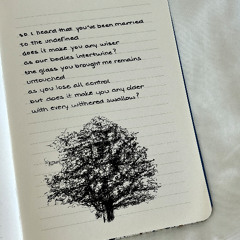 so I heard that you've been married
to the undefined
does it make you any wiser
as our bodies intertwine?
the glass you brought me remains
untouched
as you lose all control
but does it make you any older
with every withered swallow?